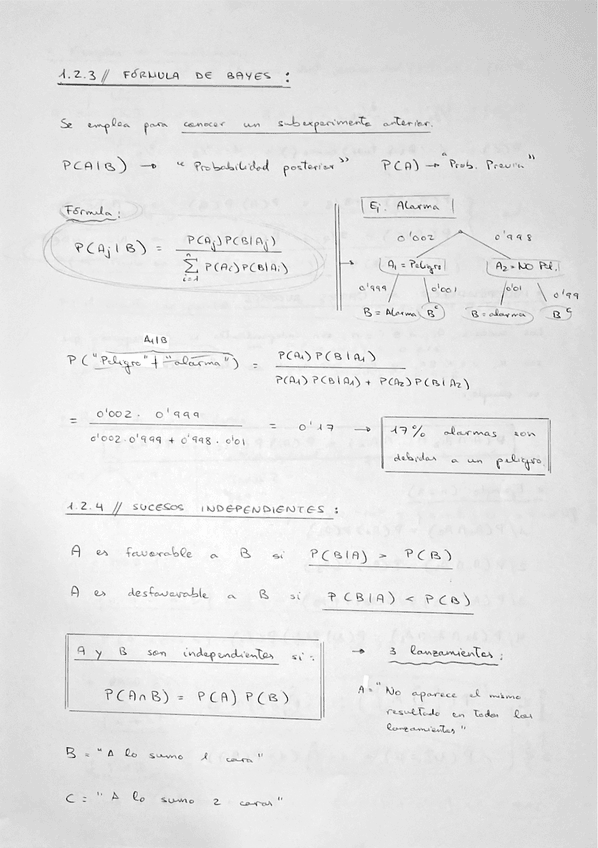 1.2.3 // FÓRMULA DE BAYES :
Se emplea para conocer un subexperimento anterior.
P(A|B) → "Probabilidad posterior" P(A) → "Prob. Previa"
Fórmula:
P(Aj|B) = P(Aj)P(B|Aj) / ∑ i=1 n P(Ai)P(B|Ai)
Ej. Alarma
0'002 0'998
A1 = Peligro A2 = NO Pel.
0'999 0'001 0'01 0'99
B = Alarma Bᶜ B = alarma Bᶜ
A1|B
P("Peligro" + "alarma") = P(A1)P(B|A1) / P(A1)P(B|A1) + P(A2)P(B|A2)
= 0'002 · 0'999 / 0'002·0'999 + 0'998·0'01 = 0'17 → 17% alarmas son
debidas a un peligro
1.2.4 // SUCESOS INDEPENDIENTES :
A es favorable a B si P(B|A) > P(B)
A es desfavorable a B si P(B|A) < P(B)
A y B son independientes si:
P(A∩B) = P(A) P(B)
→ 3 lanzamientos:
A = "No aparece el mismo
resultado en todos los
lanzamientos"
B = "A lo sumo 1 cara"
C = "A lo sumo 2 caras"